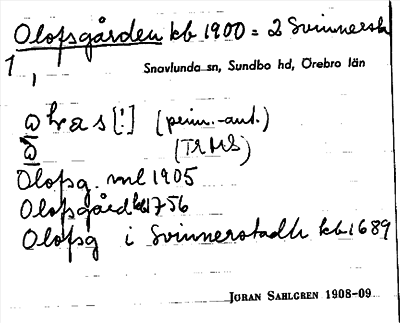 Olofsgården kb 1900 = 2 Svinnersk
1,
Snavlunda sn, Sundbo hd, Örebro län
[!] (prim.-ant.)
(TRMS)
Olofsg. ml 1905
Olofsgård kb 1756
Olofsg i Svinnerstadh kb 1689
JÖRAN SAHLGREN 1908-09